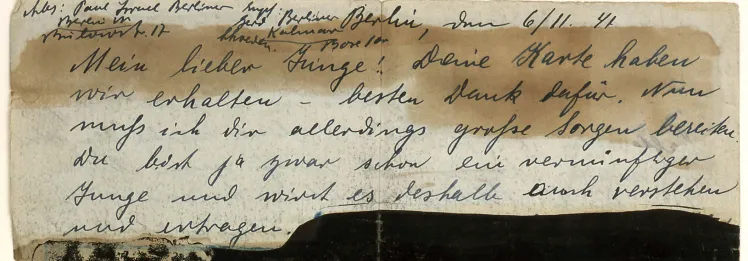 Abs: Paul Israel Berliner
Berlin W
Bülowstr. 17
Empf: Berliner
Gerd
Kalmar
Schweden. Box 100
Berlin, den 6/11. 41
Mein lieber Junge! Deine Karte haben
wir erhalten – besten Dank dafür. Nun
muß ich dir allerdings große Sorgen bereiten.
Du bist ja zwar schon ein vernünftiger
Junge und wirst es deshalb auch verstehen
und ertragen.